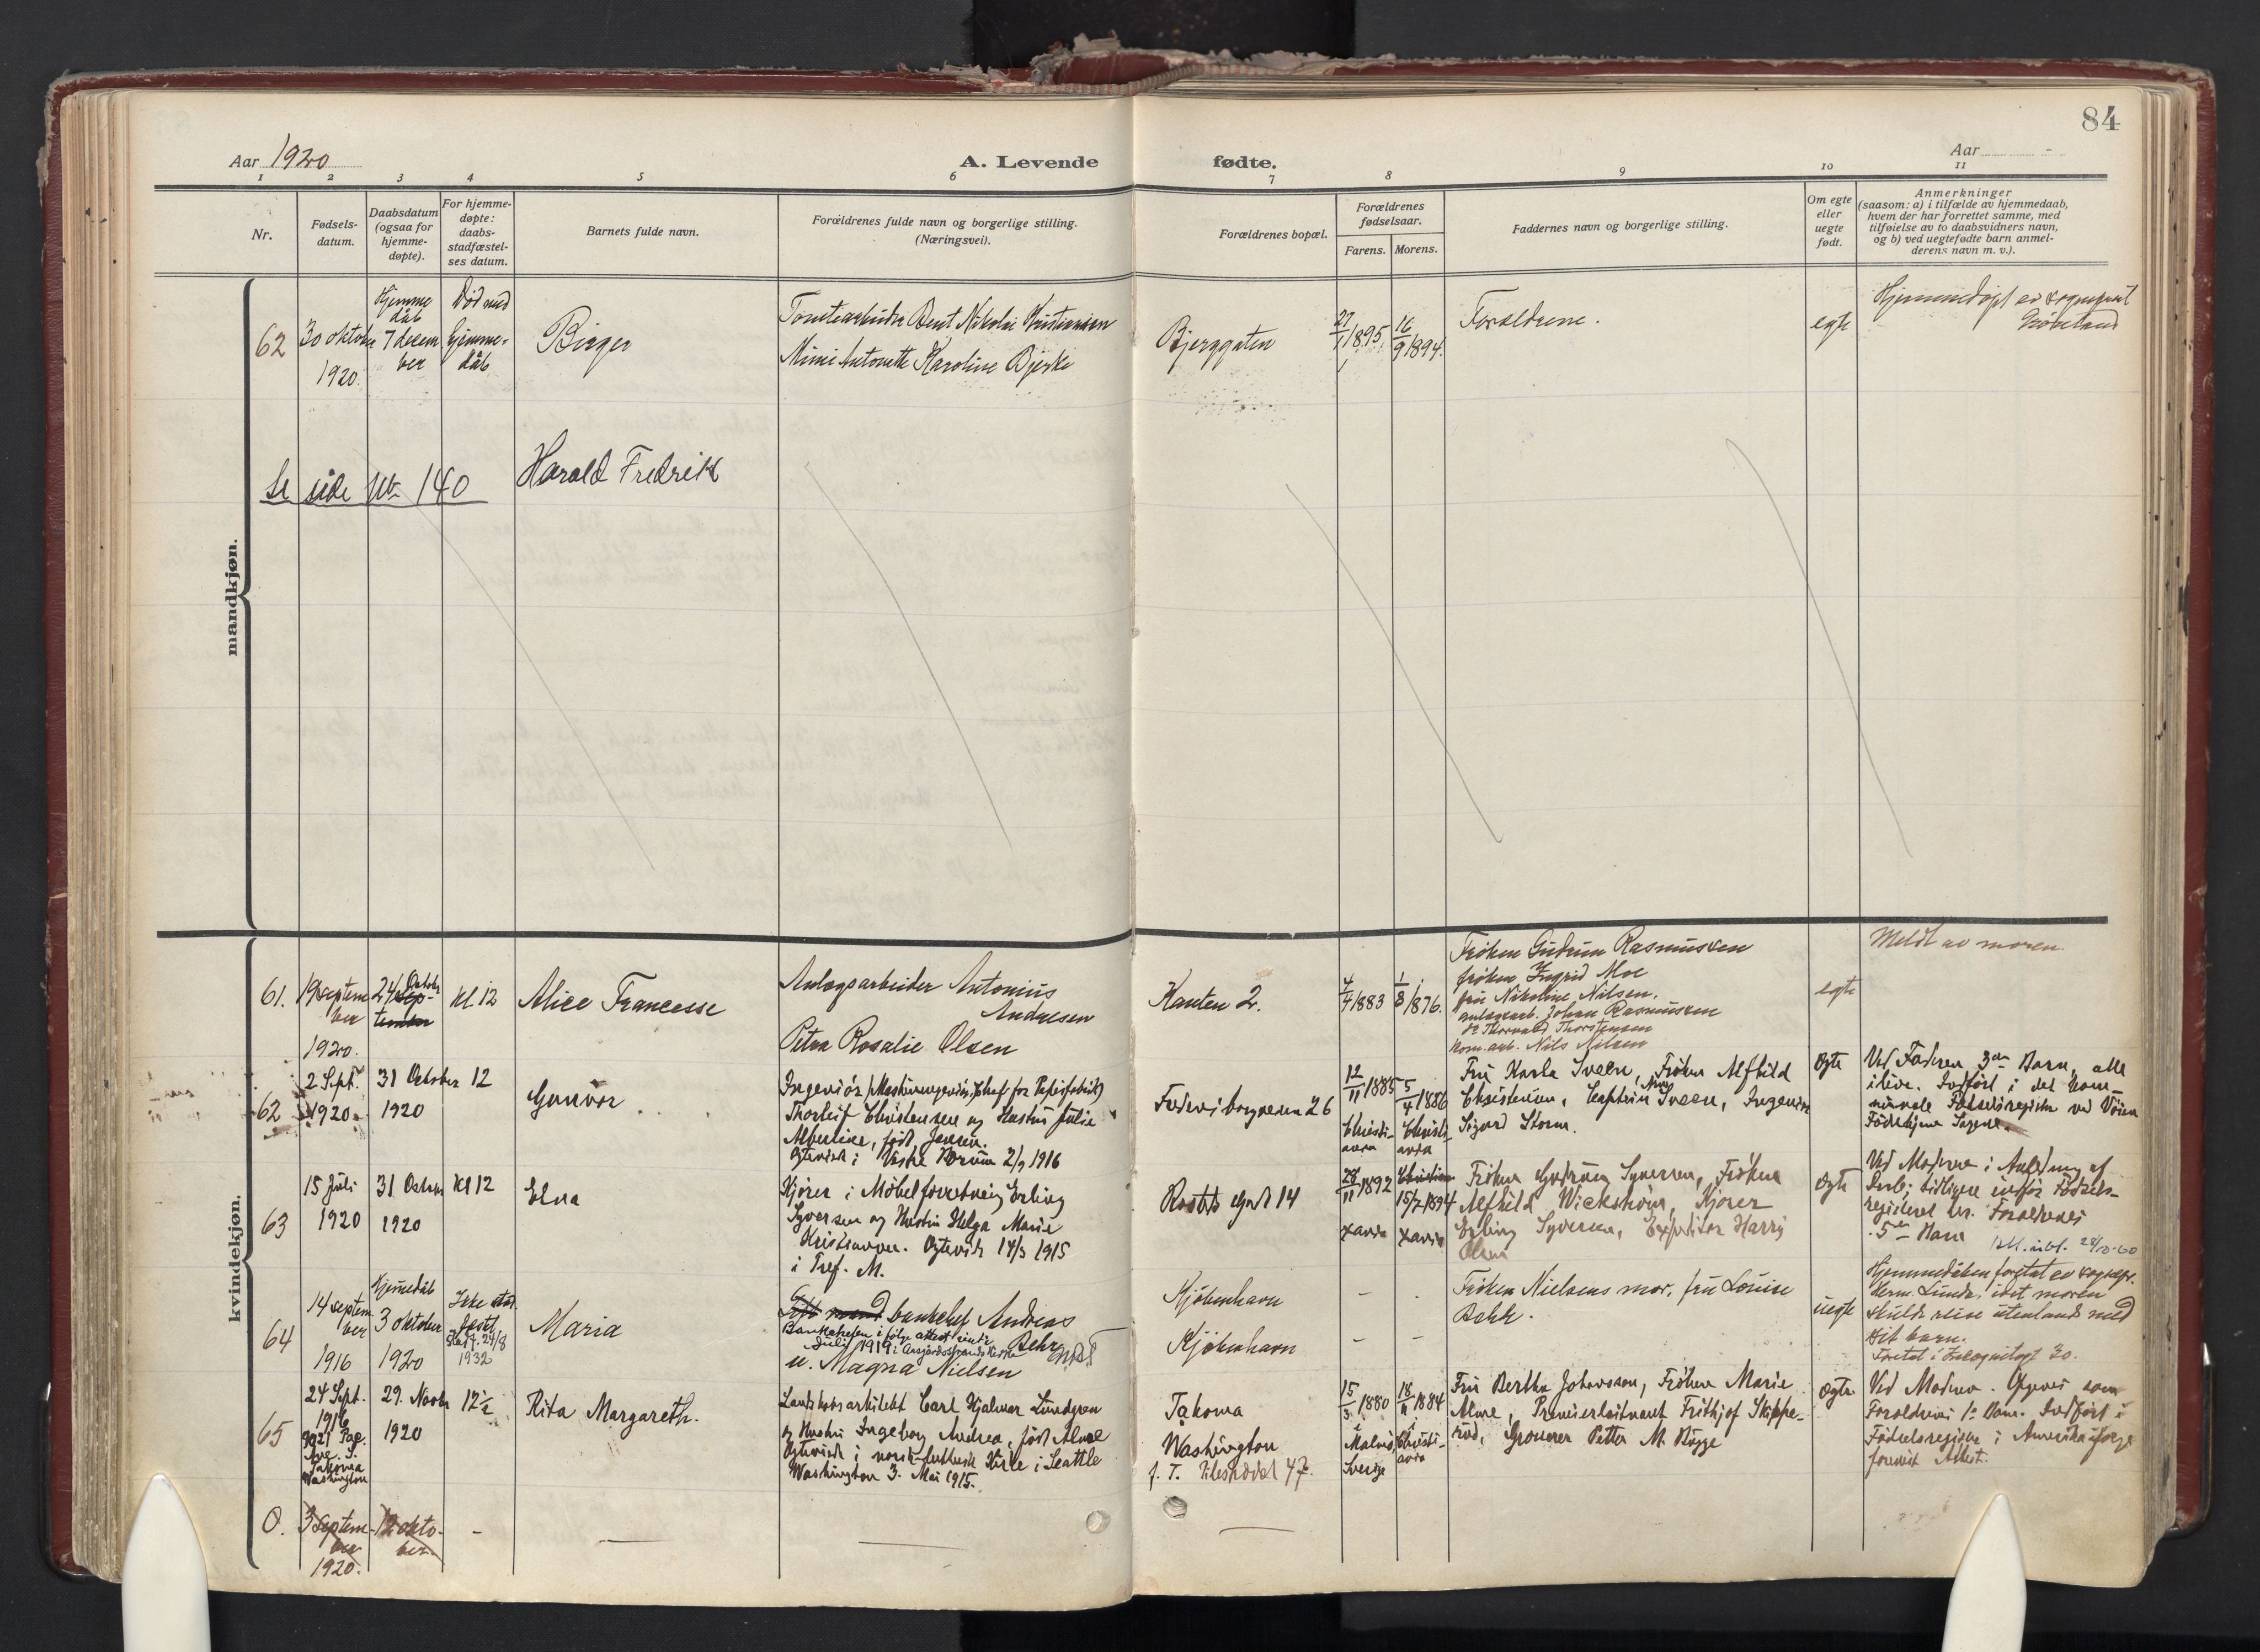 84
Aar 1920
A. Levende fødte.
Aar -
1 2 3 4 5 6 7 8 9 10 11
Nr.
Fødsels-
datum.
Daabsdatum
(ogsaa for
hjemme-
døpte).
For hjemme-
døpte:
daabs-
stadfæstel-
ses datum.
Barnets fulde navn.
Forældrenes fulde navn og borgerlige stilling.
(Næringsvei).
Forældrenes bopæl.
Forældrenes
fødselsaar.
Farens. Morens.
Faddernes navn og borgerlige stilling.
Om egte
eller
uegte
født.
Anmerkninger
(saasom: a) i tilfælde av hjemmedaab,
hvem der har forrettet samme, med
tilføielse av to daabsvidners navn,
og b) ved uegtefødte barn anmel-
derens navn m. v.).
mandkjøn.
62
30 oktober
1920
Hjemme
dåb
7 decem
ber
Død med
hjemme-
dåb
Birger
Bent Nikolai Kristiansen
Mimi Antonette Karoline Bjerke
Bjerggaten
27/1 1895
16/9 1894.
Forældrene.
egte
Hjemmedøpt av sogneprest
Se side Nr 140
Harald Fredrik
kvindekjøn.
61.
19 septem
ber
1920.
24 Oktober
Sep-
tember
Kl. 12
Alice Francesse
Anlægsarbeider Antonius
Andresen
Petra Rosalie Olsen
Kanten 2.
4/4 1883
1/8 1876.
Frøken Gudrun Rasmussen
frøken Ingrid Moe
fru Nikoline Nilsen.
anlægsarb. Johan Rasmussen
do Thorvald Thorstensen
kom. arb. Nils Nilsen
egte
Meldt av moren.
62
2 Sept.
1920
31 October
1920
12
Gunvor
Ingeniør (Maskiningeniør, Chef for Papirfabrik)
Thorleif Christensen og Hustru Julie
Albertine, født Jensen.
Ægteviet i Vestre Bærum 2/9 1916
Fredensborgveien 26
12/11 1885
Christi-
ania
5/4 1886
Christi-
ania
Fru Karla Sveen, Frøken Alfhild
Christensen, Captein Sveen, Ingeniør
Sigurd Storm.
Ægte
Ved Faderen 3die Barn, alle
ilive. Indført i det kom-
munale Fødselsregister ved Vøien
Fødehjem Sagene.
63
15 Juli
1920
31 October
1920
Kl 12
Elna
Kjører i Møbelforretning Erling
Syversen og Hustru Helga Marie
Kristiansen. Ægteviet 17/3 1915
i Tref. M.
Rostedsgade 14
28/11 1892
Xania
Christiania
15/7 1894
Xania
Frøken Gudrun Syversen, Frøken
Alfhild Wickstrøm, Kjører
Erling Syversen, Expeditør Harry
Olsen
Ægte
Ved Moderen i Anledning af
Daab; tidligere indført Fødsels-
registeret her. Forældrenes
5te Barn
64
14 septem
ber
1916
Hjemmedåb
3 oktober
1920
Ikke stad
fæstet
Stadf. 24/8
1932
Maria
bankchef Andreas
Behr
Bankchefen i følge attest viet
Juli 1919 i Aasgårdsstrands kirke
u. Magna Nielsen
Kjøbenhavn
Kjøbenhavn
- -
- -
Frøken Nielsens mor, fru Louise
Bakk.
uegte
Hjemmedåben foretat av sognepr.
Herm. Lunde, idet moren
skulde reise utenlands med
sit barn.
Foretat i Incognitogt 30.
65
24 Sept.
1916
3021 Pac.
Ave. S.
Takoma
Washington
29. Novbr
1920
12 1/2
Rita Margareth.
Landskabsarkitekt Carl Hjalmar Lundgren
og Hustru Ingeborg Andrea, født Alme
Ægteviet i norsk-luthersk Kirke i Seattle
Washington 3. Mai 1915.
Takoma
Washington
f. T. Pilestrædet 47.
15/3 1880
Malmø,
Sverige
18/11 1884
Christi-
ania
Fru Bertha Johansson, Frøken Marie
Alme, Premierløitnant Frithjof Skippe-
rud, Grosserer Petter M. Røgge
Ægte
Ved Moderen. Opgives som
Forældrenes 1ste Barn. Indført i
Fødselsregister i Amerika ifølge
forevist Attest.
0.
3 septem-
ber
1920.
12 okto-
ber
-